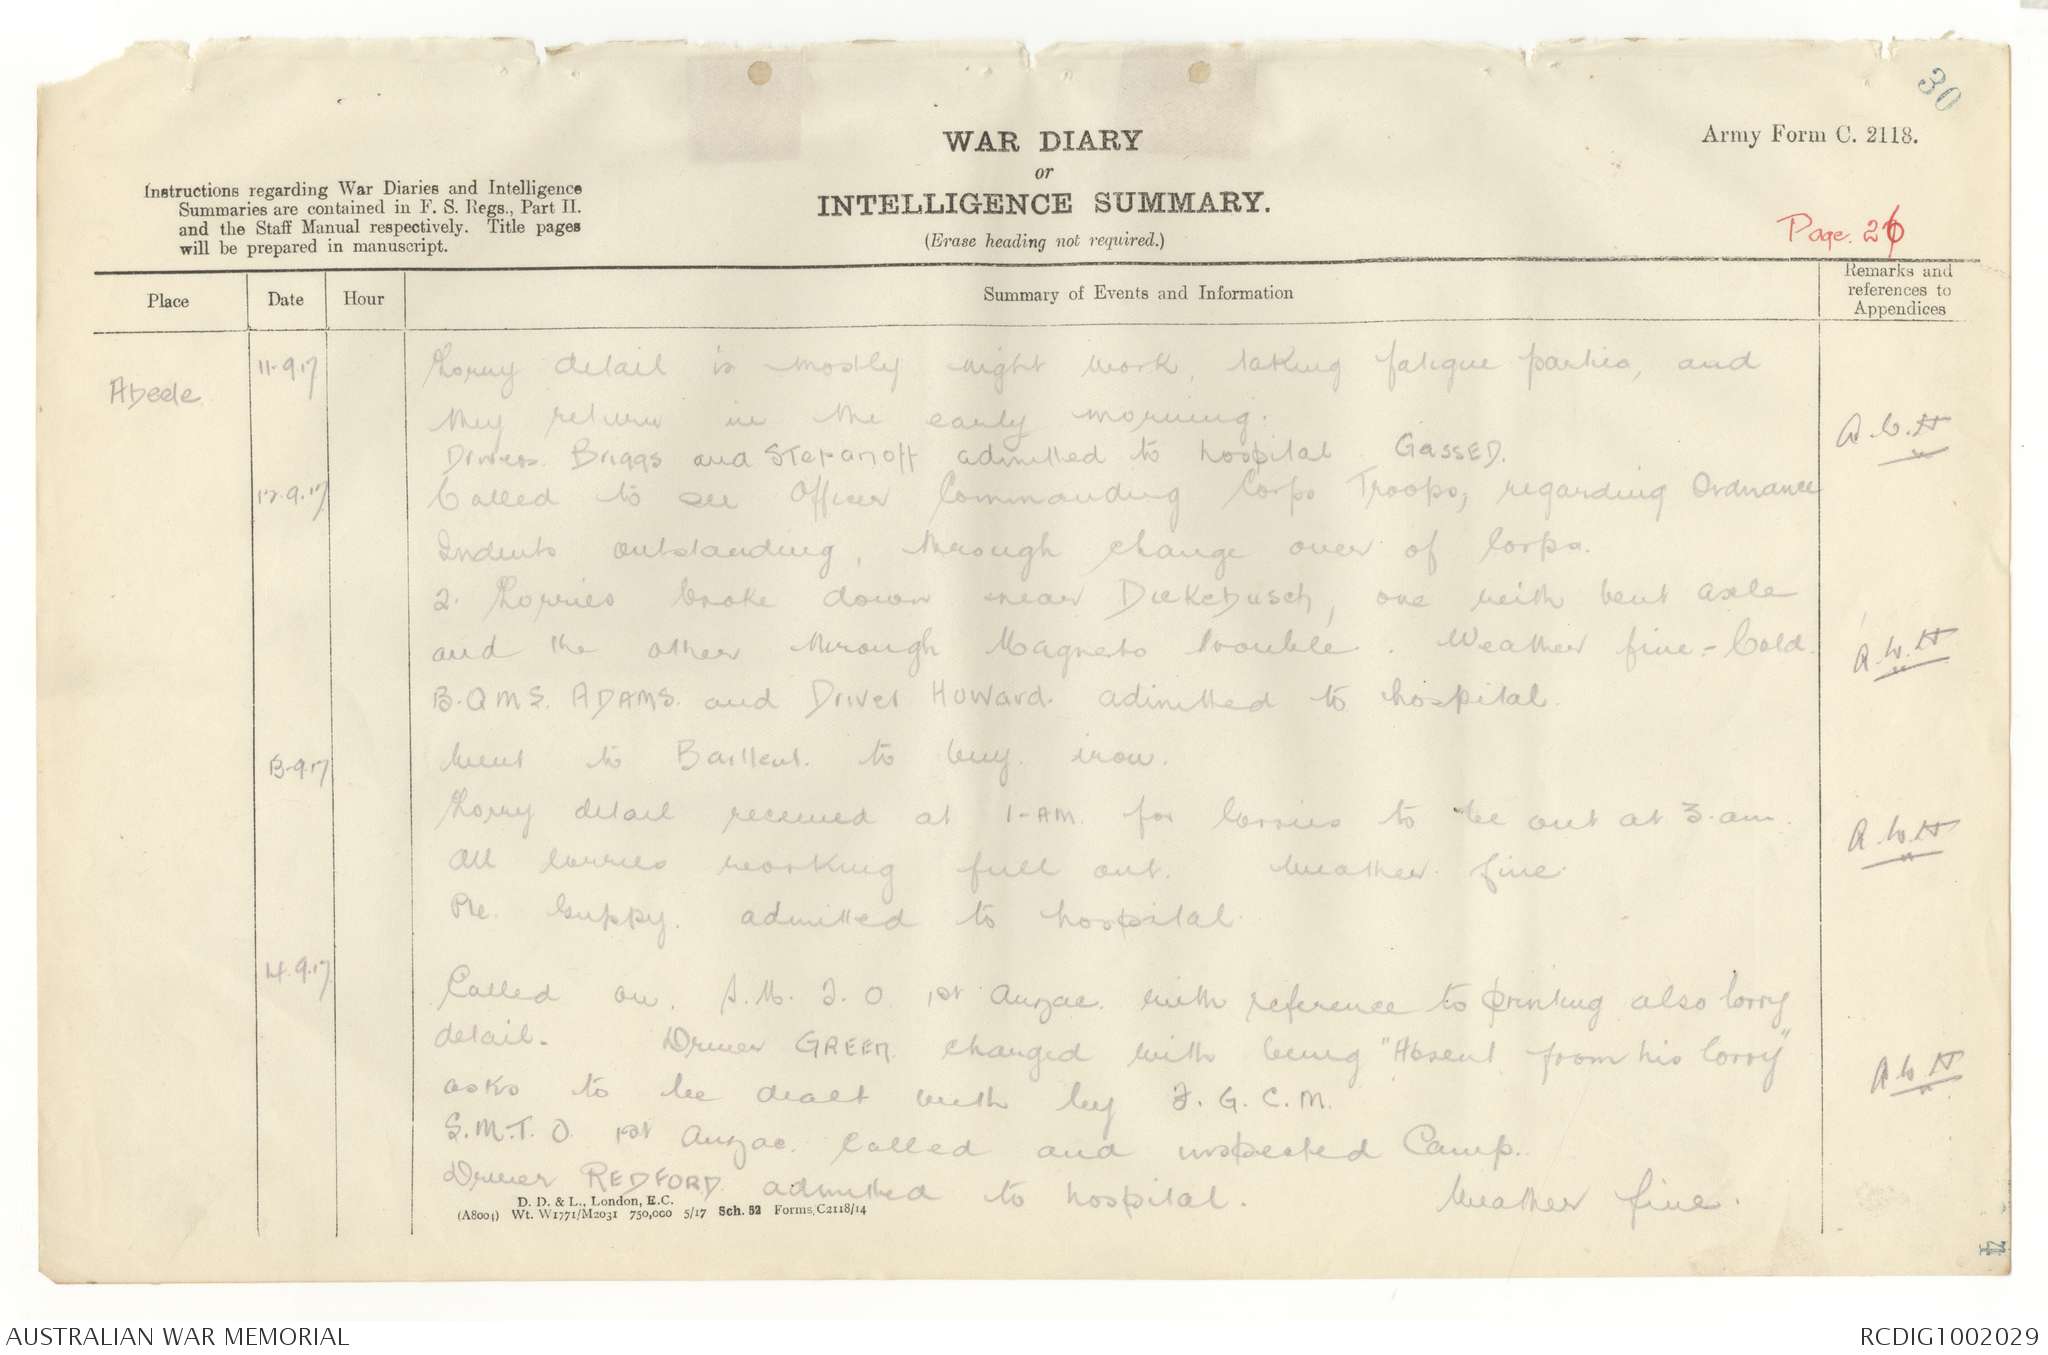 30
Army Form C. 2118.
WAR DIARY
or
INTELLIGENCE SUMMARY.
(Erase heading not required.)
Instructions regarding War Diaries and Intelligence
Summaries are contained in F. S. Regs., Part II.
and the Staff Manual respectively. Title pages
will be prepared in manuscript.
Page. 26
Place
Date
Hour
Summary of Events and Information
Remarks and
references to
Appendices
Abeele
11-9.17
Lorry detail is mostly night work, taking fatigue parties, and
they return in the early morning.
A.W.H
Drivers. Briggs and Stepanoff admitted to hospital GASSED.
12.9.17
Called to see Officer Commanding Corps Troops, regarding Ordnance
Indents outstanding, through change over of Corps.
2. Lorries broke down near Dickebusch, one with bent axle
and the other through Magneto trouble. Weather fine - Cold.
A.W.H
B.Q.M.S. ADAMS. and Driver Howard. admitted to hospital.
13-9.17
Went to Bailleul. to buy. iron.
Lorry detail received at 1-AM. for lorries to be out at 3.am.
A.W.H
All lorries working full out. Weather fine.
Pte. Guppy. admitted to hospital.
14.9.17
Called on. S.M.T.O. 1st Anzac. with reference to printing also lorry
detail. Driver GREEN charged with being "Absent from his lorry"
A.W.H
asks to be dealt with by F.G.C.M.
S.M.T.O. 1st Anzac. Called and inspected Camp.
Driver REDFORD admitted to hospital. Weather fine.
D. D. & L., London, E.C.
(A8004) Wt. W1771/M2031 750,000 5/17 Sch. 52 Forms, C2118/14
4
AUSTRALIAN WAR MEMORIAL
RCDIG1002029